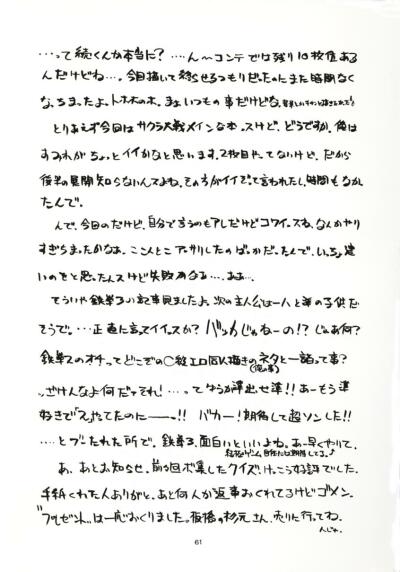 …って続くんか本当に?…ん〜コンテでは残り10枚位ある
んだけどね…。今回描いて終らせるつもりだったのにまた時間なく
なっちまったよ。トホホのホ。まぁいつもの事だけどな。
とりあえず今回はサクラ大戦メインな本っスけど、どうですか。俺は
すみれがちょっとイイかなと思います。2枚目やってないけど、だから
後半の展開知らないんスよね。その方がイイぞって言われたし、時間もなか
たんで。
んで、今回のだけど、自分で言うのもアレだけどコワイっスね。なんかやり
すぎちまったかなぁ。ここんとこアッサリしたのばっかだったんで、いっちょ違
いのをと思ったんスけど失敗かなぁ…。あぁ…。
てういや鉄拳3の記事見ましたよ。次の主人公は一八と準の子供だ
そうで。…正直に言ってイイっスか? バッカじゃねーの!? じゃあ何?
鉄拳2のオチってどこぞの○経エロ同人描きのネタと一諸って事?
(俺の事)
ざけんなよ何だァそれ!…ってゆうか準出せ準!!あーもう準
好きで「2」やてたのにーー!!バカー!期待して超ソンした!!
…とブーたれた所で、鉄拳3、面白いといいよね。あー早くやりて。
結局ゲーム自体には期待してる♪
あ、あとお知らせ、前回ボ集したクイズ、けっこう好評でした。
手紙くれた人ありがと。あと何人か返事おくれてるけどゴメン。
"プレゼント"は一応おくりました。板橋の杉元さん、売りに行ってね。
んじゃ。
61